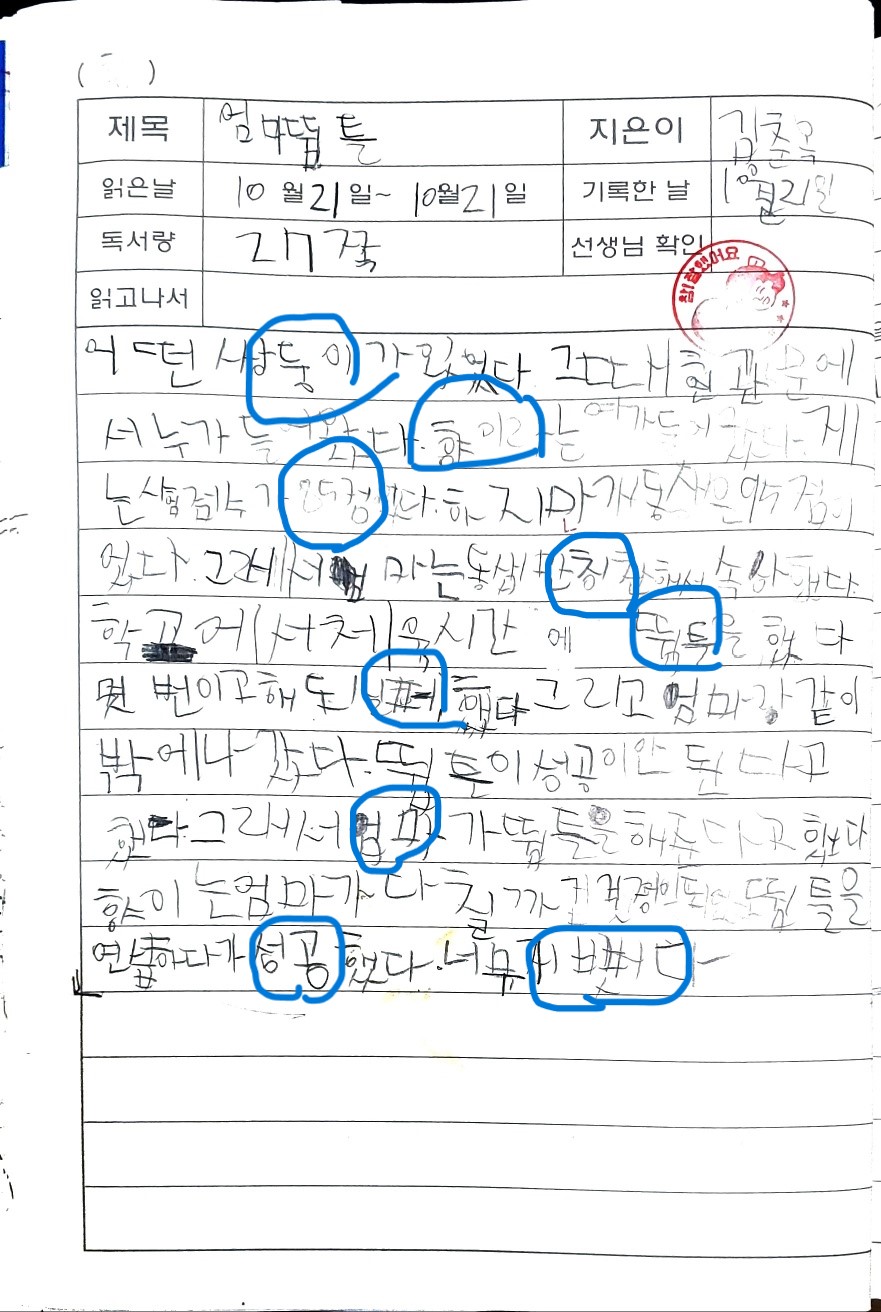 ( )
제목 엄마뜀틀 지은이 김춘옥
읽은날 10월21일~ 10월21일 기록한 날 10월21일
독서량 27쪽 선생님 확인 참잘했어요
읽고나서
어떤 쌍둥이가 있었다. 그때 현관문에
서 누가 들어왔다. 향이라는
는 시험점수가 하지만 개동생은 95점이
었다. 그레서 엄마는 동생만 칭찬해서 속상했다.
학교에서 체육시간에 뜀틀을 했다
몇 번이고해도 했다 그리고 엄마랑 같이
밖에나갔다. 뜀튼이 성공이안 된다고
했다. 그레서 엄마가 뜀틀을해준다고 했다
향이는엄마가 다칠까 걱정이되 뜀틀을
연습하다가 성공했다. 너무 기뻤다